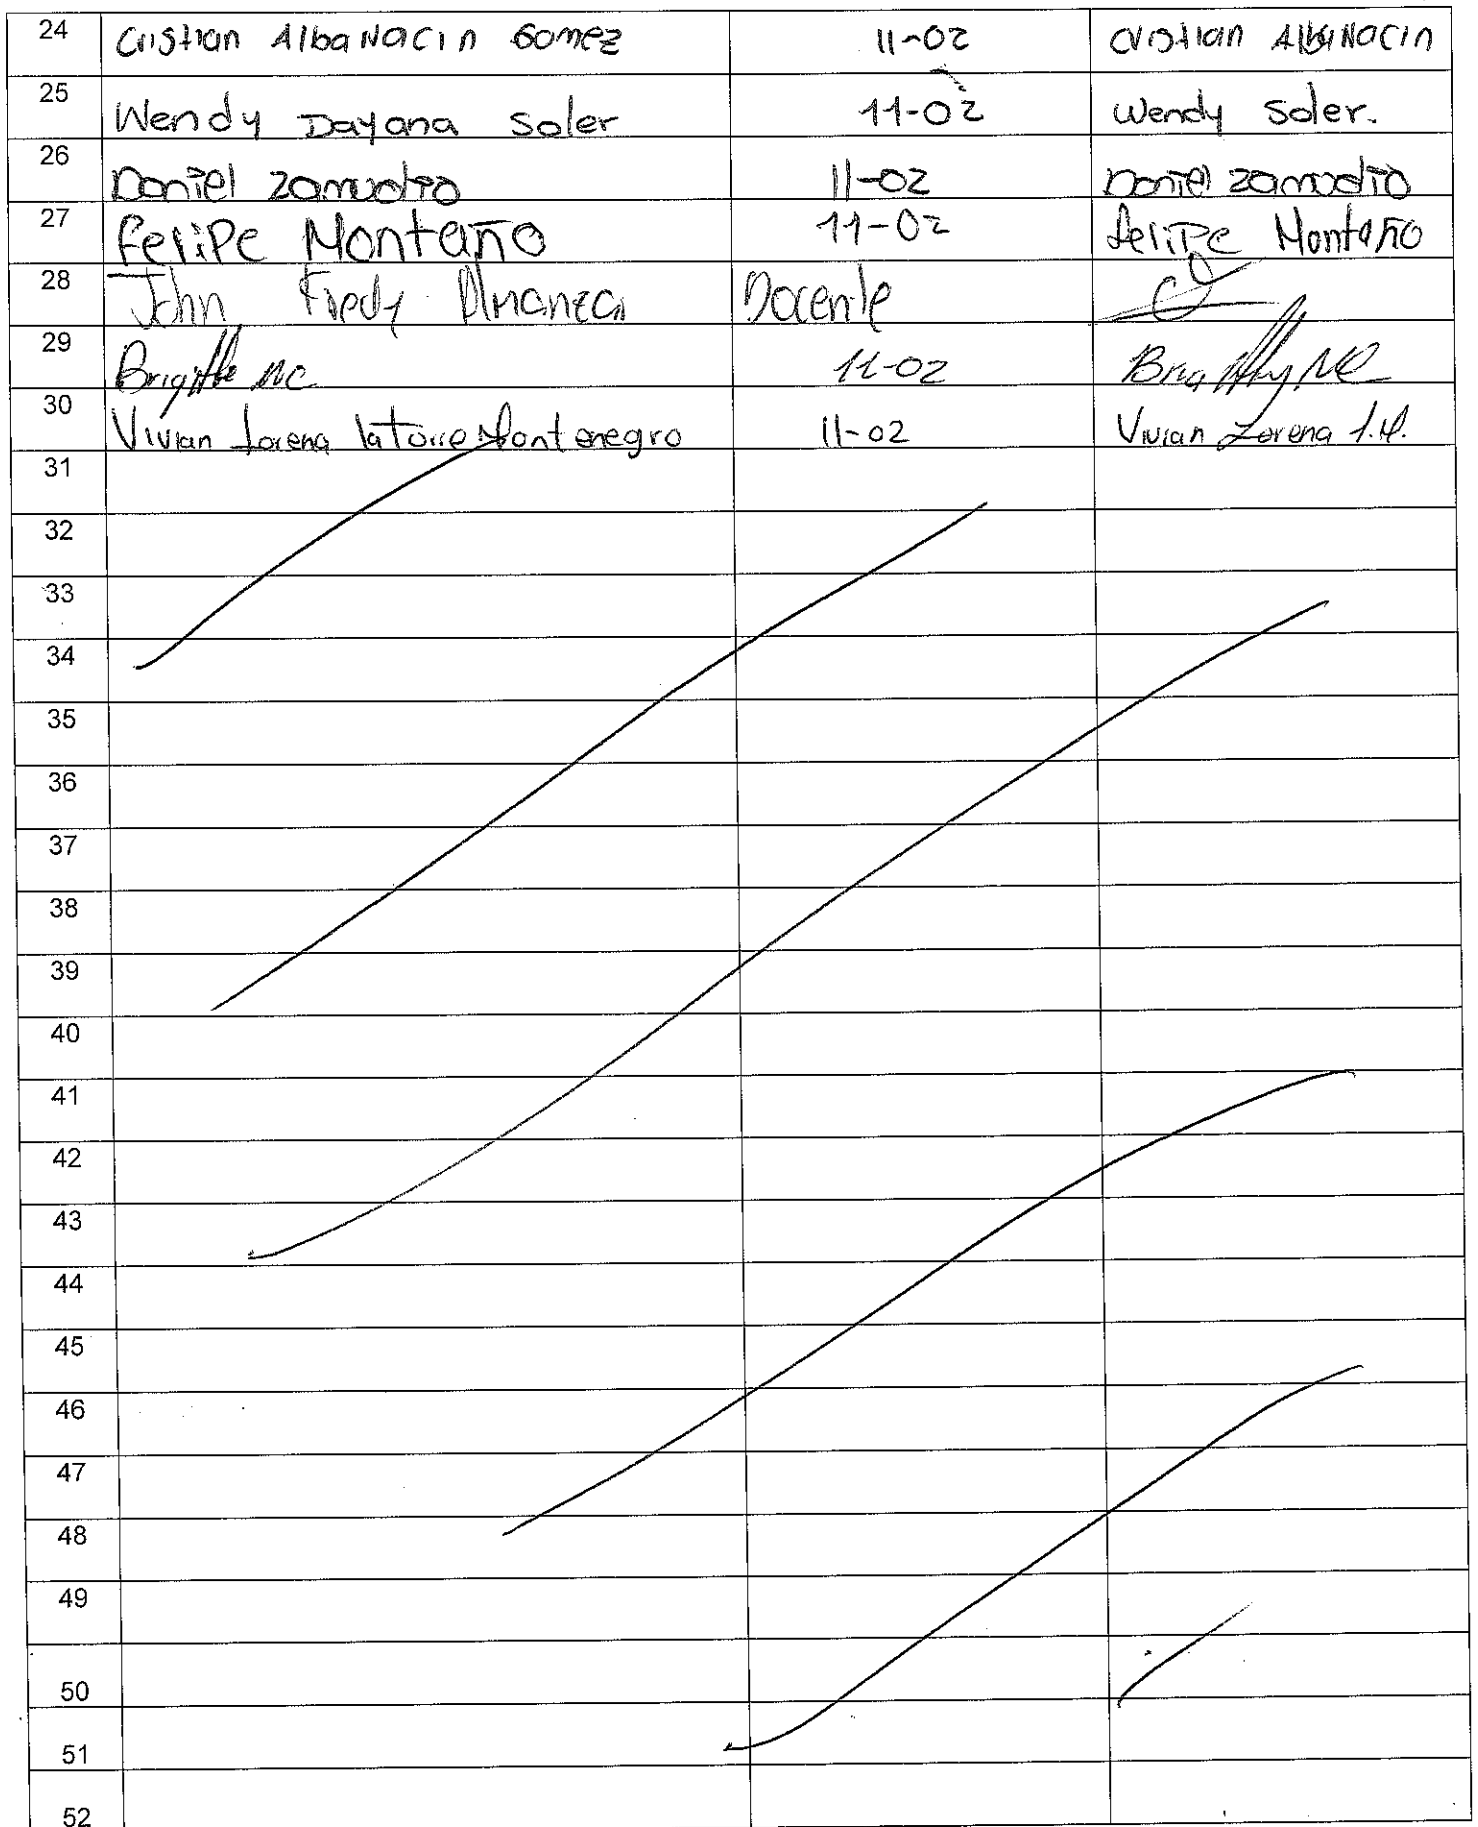 24 Cristian Albanacin Gomez 11-02 Cristian Albanacin
25 Wendy Dayana Soler 11-02 Wendy Soler.
26 Daniel Zamudio 11-02 Daniel Zamudio
27 Felipe Montaño 11-02 Felipe Montaño
28 John Fredy Almanza Docente
29 Brigitte 11-02
30 Vivian Lorena Latorre Montenegro 11-02 Vivian Lorena
31
32
33
34
35
36
37
38
39
40
41
42
43
44
45
46
47
48
49
50
51
52